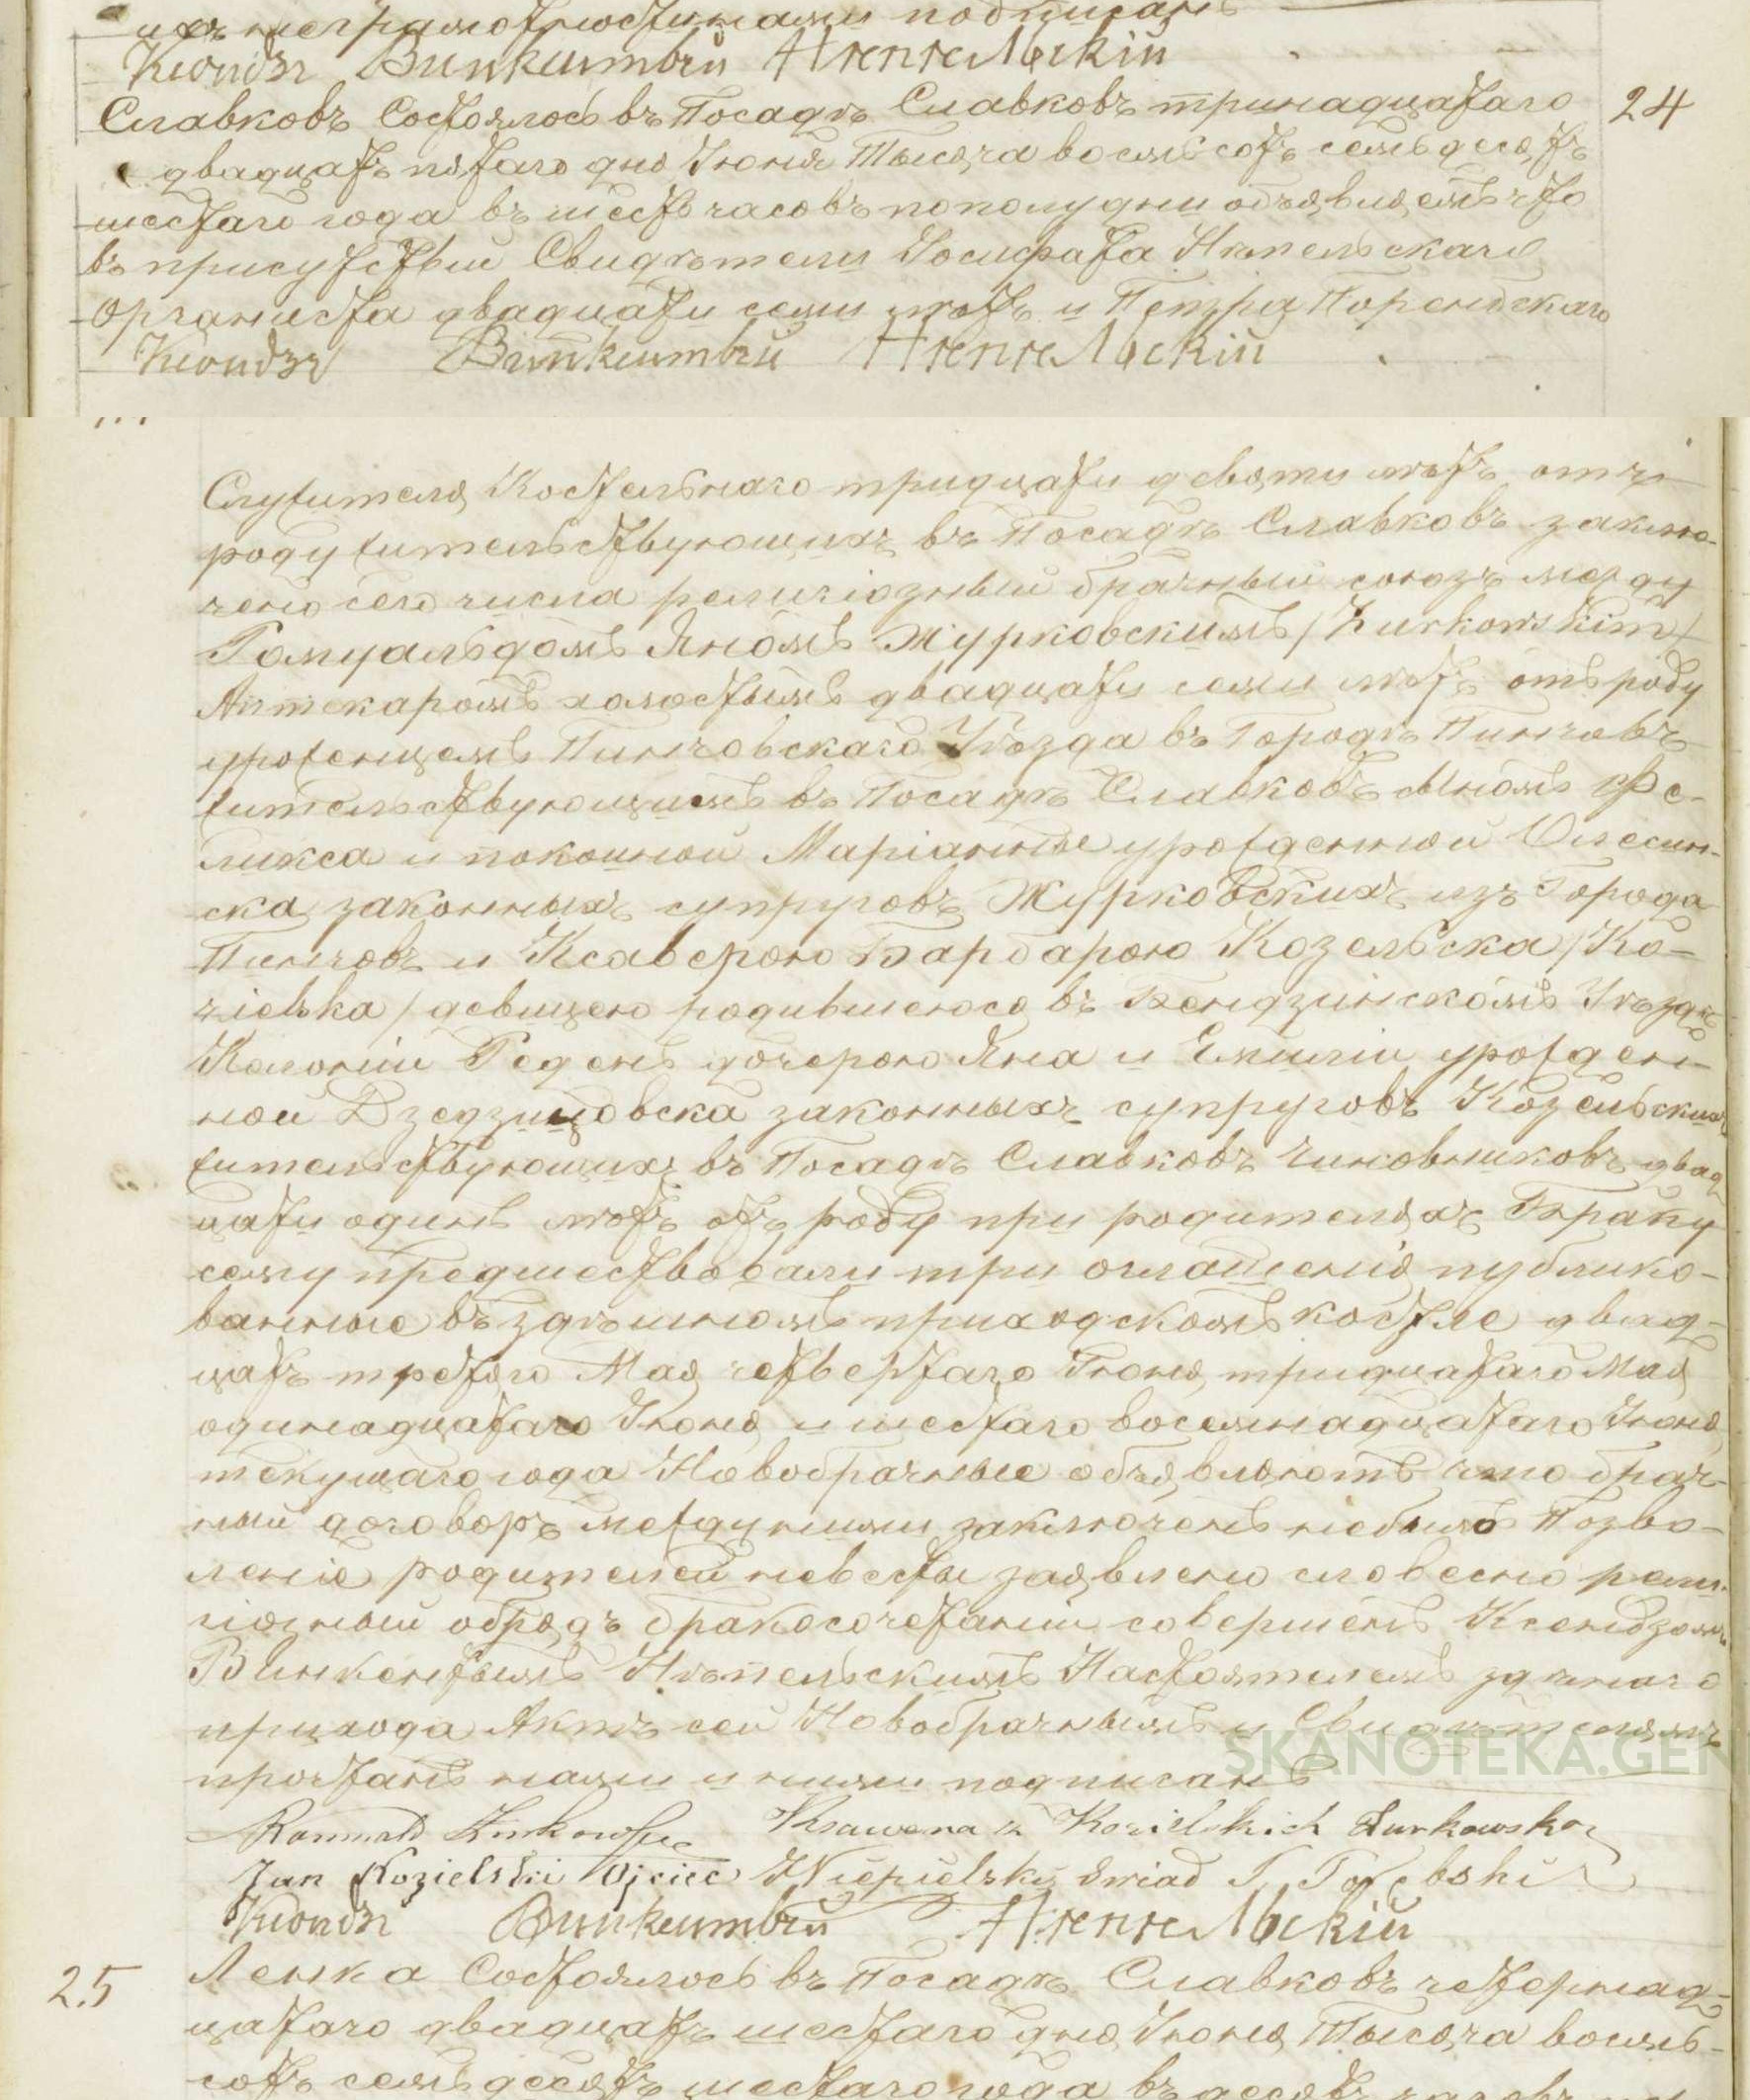 ихъ неграмотностью нами подписанъ
Ксондзъ Винкентый Нѣпѣльскій
24
Славковъ Состоялось въ Посадѣ Славковъ тринадцатаго
двадцать пятаго дня Іюня Тысяча восемьсотъ семьдесятъ
шестаго года въ шесть часовъ пополудни объявляемъ что
въ присутствіи Свидѣтели Іосифата Нѣпельскаго
Органиста двадцати семи лѣтъ и Петра Порембскаго
Ксондзъ Винкентый Нѣпѣльскій
Служителя Костельнаго тридцати девяти лѣтъ отъ
роду жительствующихъ въ Посадѣ Славковъ заклю-
чено сего числа религіозный брачный союзъ между
Ромуальдомъ Яномъ Журковскимъ /Żurkowskim/
Аптекаромъ холостымъ двадцати семи лѣтъ отъ роду
уроженцемъ Пинчовскаго Уѣзда въ Городѣ Пинчовъ
жительствующимъ въ Посадѣ Славковъ сыномъ Фе-
ликса и покойной Маріанны урожденной Олесин-
ска законныхъ супруговъ Журковскихъ изъ Города
Пинчовъ и Ксаверою Барбарою Козельска /Ko-
zielska/ девицею родившеюся въ Бендзинскомъ Уѣздѣ
Колоніи Реденъ дочерою Яна и Емиліи урожден-
ной Дзедзицовска законныхъ супруговъ Козельскихъ
жительствующихъ въ Посадѣ Славковъ Чиновниковъ двад-
цати одинъ лѣтъ отъ роду при родителяхъ Браку
сему предшествовали три оглашенія публико-
ванные въ здѣшномъ приходскомъ костле двад-
цать третяго Мая четвертаго Іюня, тридцатаго Мая
одинадцатаго Іюня и шестаго восемнадцатаго Іюня
текущаго года Новобрачные объявляютъ что брач-
ный договоръ между ними заключенъ небылъ Позво-
леніе родителей невесты заявлено словесно рели-
гіозный обрядъ бракосочетанія совершенъ Ксендзомъ
Винкентымъ Нѣпельскимъ Настоятелемъ здѣшнаго
прихода Актъ сей Новобрачнымъ и Свидѣтелямъ
прочтанъ нами и ними подписанъ
SKANOTEKA.GEN
Romuald Żurkowski Ksawera z Kozielskich Żurkowska
Jan Kozielski Ojciec J Niepielski świad P. Porębski
Ксондзъ Винкентый Нѣпѣльскій
25
Ленка Состоялось въ Посадѣ Славковъ четернад-
цатаго двадцать шестаго дня Іюня Тысяча восемь-
сотъ семьдесятъ шестаго года въ